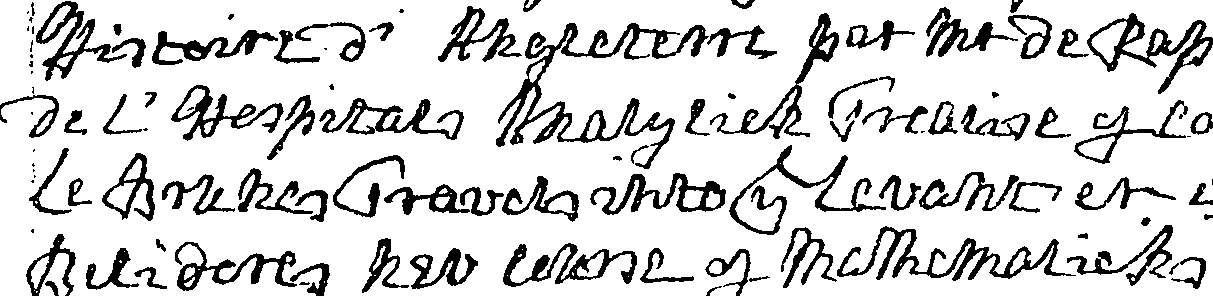 Histoire d' Angleterre par Mr de Rap
de L' Hospitals Analytick Treatise of co
Le Brunes Travels into ye Levant et
Belidores new course of Mathematicks